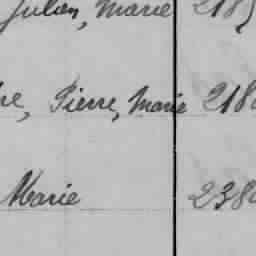 Julien, Marie 218
re, Pierre, Marie 218
Marie 238